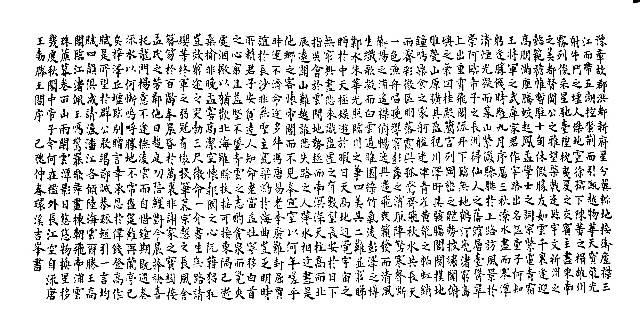 豫章故郡洪都新府星分翼軫地接衡廬襟三
江而帶五湖控蠻荊而引甌越物華天寶龍光
射牛斗之墟人傑地靈徐孺下陳蕃之榻雄州
霧列俊采星馳臺隍枕夷夏之交賓主盡東南
之美都督閻公之雅望棨戟遙臨宇文新州之
懿範襜帷暫駐十旬休假勝友如雲千里逢迎
高朋滿座騰蛟起鳳孟學士之詞宗紫電清霜
王將軍之武庫家君作宰路出名區童子何知
躬逢勝餞時維九月序屬三秋潦水盡而寒潭
清煙光凝而暮山紫儼驂騑於上路訪風景於
崇阿臨帝子之長洲得仙人之舊館層巒聳翠
上出重霄飛閣流丹下臨無地鶴汀鳧渚窮島
嶼之縈迴桂殿蘭宮列岡巒之體勢披繡闥俯
雕甍山原曠其盈視川澤盱其駭矚閭閻撲地
鐘鳴鼎食之家舸艦迷津青雀黃龍之舳虹銷
雨霽彩徹區明落霞與孤鶩齊飛秋水共長天
一色漁舟唱晚響窮彭蠡之濱雁陣驚寒聲斷
衡陽之浦遙襟俯暢逸興遄飛爽籟發而清風
生纖歌凝而白雲遏睢園綠竹氣凌彭澤之樽
鄴水朱華光照臨川之筆四美具二難并窮睇
眄於中天極娛遊於暇日天高地迥覺宇宙之
無窮興盡悲來識盈虛之有數望長安於日下
指吳會於雲間地勢極而南溟深天柱高而北
辰遠關山難越誰悲失路之人萍水相逢盡是
他鄉之客懷帝閽而不見奉宣室以何年嗟乎
時運不濟命途多舛馮唐易老李廣難封屈賈
誼於長沙非無聖主竄梁鴻於海曲豈乏明時
所賴君子安貧達人知命老當益壯寧移白首
之心窮且益堅不墜青雲之志酌貪泉而覺爽
處涸轍以猶懽北海雖賒扶搖可接東隅已逝
桑榆非晚孟嘗高潔空懷報國之心阮籍猖狂
豈效窮途之哭勃三尺微命一介書生無路請
纓等終軍之弱冠有懷投筆慕宗慤之長風舍
簪笏於百齡奉晨昏於萬里非謝家之寶樹接
孟氏之芳鄰他日趨庭叨陪鯉對今晨捧袂喜
托龍門楊意不逢撫凌雲而自惜鍾期既遇奏
流水以何慚嗚呼勝地不常盛筵難再蘭亭已
矣梓澤丘墟臨別贈言幸承恩於偉餞登高作
賦是所望於群公敢竭鄙誠恭疏短引一言均
賦四韻俱成請灑潘江各傾陸海云爾滕王高
閣臨江渚佩玉鳴鸞罷歌舞畫棟朝飛南浦雲
珠簾暮卷西山雨閒雲潭影日悠悠物換星移
幾度秋閣中帝子今何在檻外長江空自流唐
王勃滕王閣序 仲春環溪古書